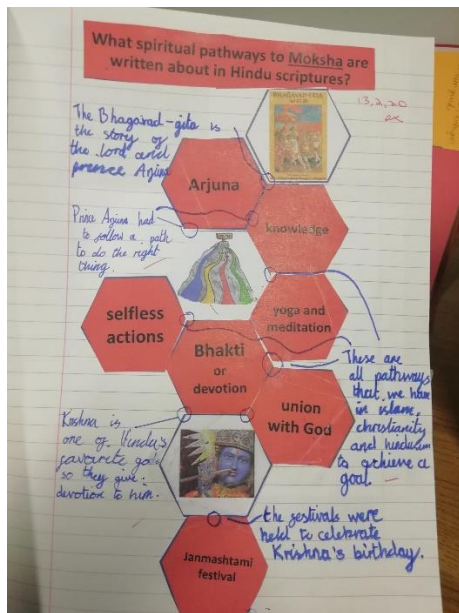 What spiritual pathways to Moksha are
written about in Hindu scriptures?
13,2,20
The Bhagavad-gita is
the story of
the lord and
prence Arjuna
BHAGAVAD-GITA
Arjuna
knowledge
Prince Arjuna had
to follow a path
to do the right
thing.
selfless
actions
yoga and
meditation
Bhakti
or
devotion
union
with God
These are
all pathways
that we have
in islam,
christianity
and hinduism
to achieve a
goal.
Krishna is
one of Hindu's
favourite gods
so they give
devotion to him.
the festivals were
held to celebrate
Krishna's birthday.
Janmashtami
festival